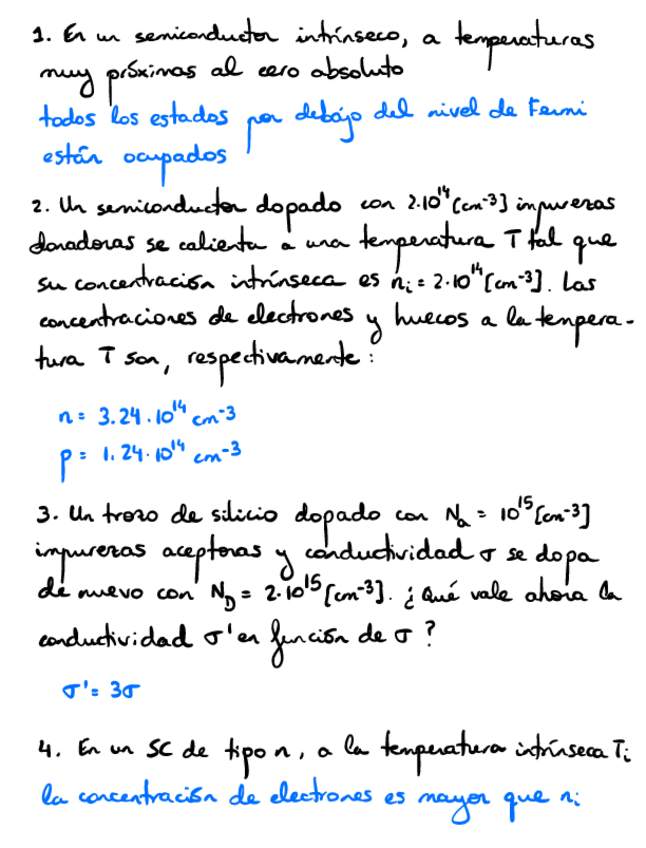 1. En un semiconductor intrínseco, a temperaturas
muy próximas al cero absoluto
todos los estados por debajo del nivel de Fermi
están ocupados
2. Un semiconductor dopado con 2·10¹⁴ [cm⁻³] impurezas
donadoras se calienta a una temperatura T tal que
su concentración intrínseca es nᵢ = 2·10¹⁴ [cm⁻³]. Las
concentraciones de electrones y huecos a la tempera-
tura T son, respectivamente:
n = 3.24·10¹⁴ cm⁻³
p = 1.24·10¹⁴ cm⁻³
3. Un trozo de silicio dopado con Nₐ = 10¹⁵ [cm⁻³]
impurezas aceptoras y conductividad σ se dopa
de nuevo con N_D = 2·10¹⁵ [cm⁻³]. ¿Qué vale ahora la
conductividad σ' en función de σ?
σ' = 3σ
4. En un SC de tipo n, a la temperatura intrínseca Tᵢ
la concentración de electrones es mayor que nᵢ